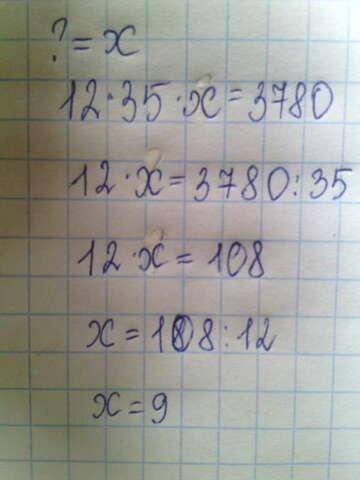 ? = x
12·35·x = 3780
12·x = 3780:35
12·x = 108
x = 108:12
x = 9